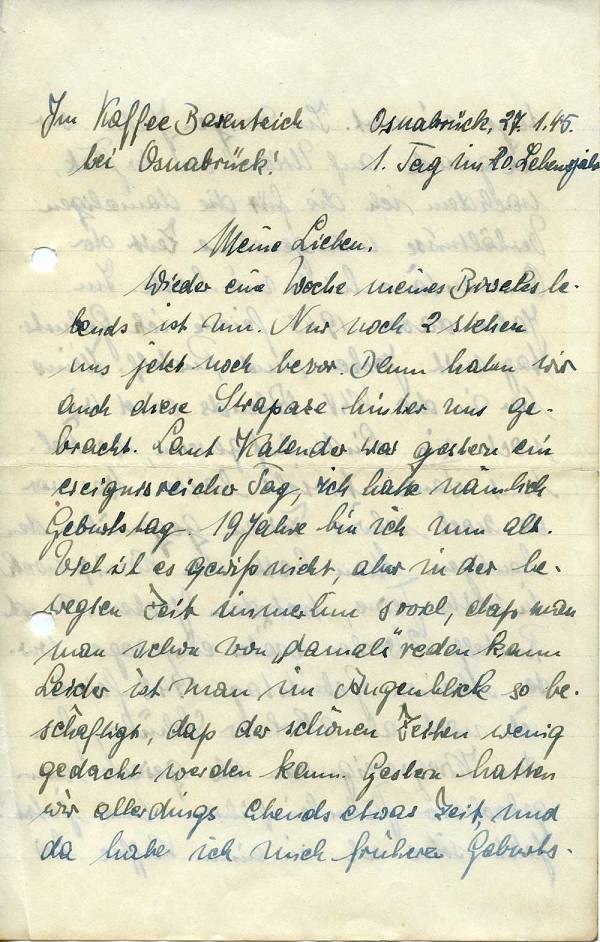 Im Kaffee Barenteich Osnabrück, 27.1.45.
bei Osnabrück! 1. Tag im 20. Lebensjahr
Meine Lieben.
Wieder eine Woche meines Biwakle-
bends ist um. Nur noch 2 stehen
uns jetzt noch bevor. Dann haben wir
auch diese Strapaze hinter uns ge-
bracht. Laut Kalender war gestern ein
ereignisreicher Tag, ich hatte nämlich
Geburtstag. 19 Jahre bin ich nun alt.
Viel ist es gewiß nicht, aber in der be-
wegten Zeit immerhin soviel, daß man
man schon von „damals" reden kann
Leider ist man im Augenblick so be-
schäftigt, daß der schönen Zeiten wenig
gedacht werden kann. Gestern hatten
wir allerdings abends etwas Zeit, und
da habe ich mich früherer Geburts-